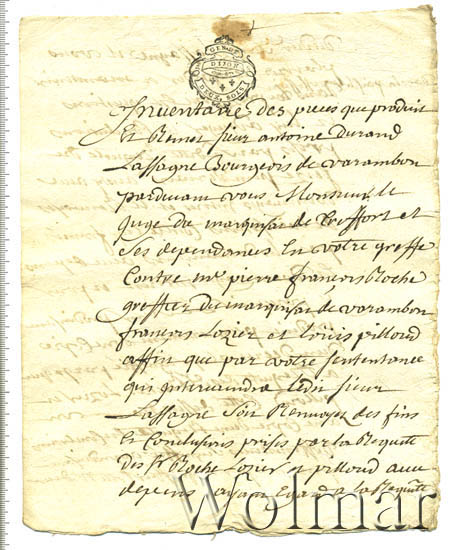 GEN. DE
DIJON
DEUX SOLS
Inventaire des pieces que produit
Et Remet sieur antoine Durand
Lassagne Bourgeois de varambon
pardevant vous Monsieur le
Juge du marquisat de Treffort et
Ses dependances En votre greffe
Contre me pierre françois Roche
greffier du marquisat de varambon
françois Lozier et Louis pilloud
affin que par votre sententance
qui interviendra ledit sieur
Lassagne soit Renvoyez des fins
et Conclusions prises par la Requette
des Sr Roche Lozier et pilloud avec
depens sans Egard a la Requette
Wolmar